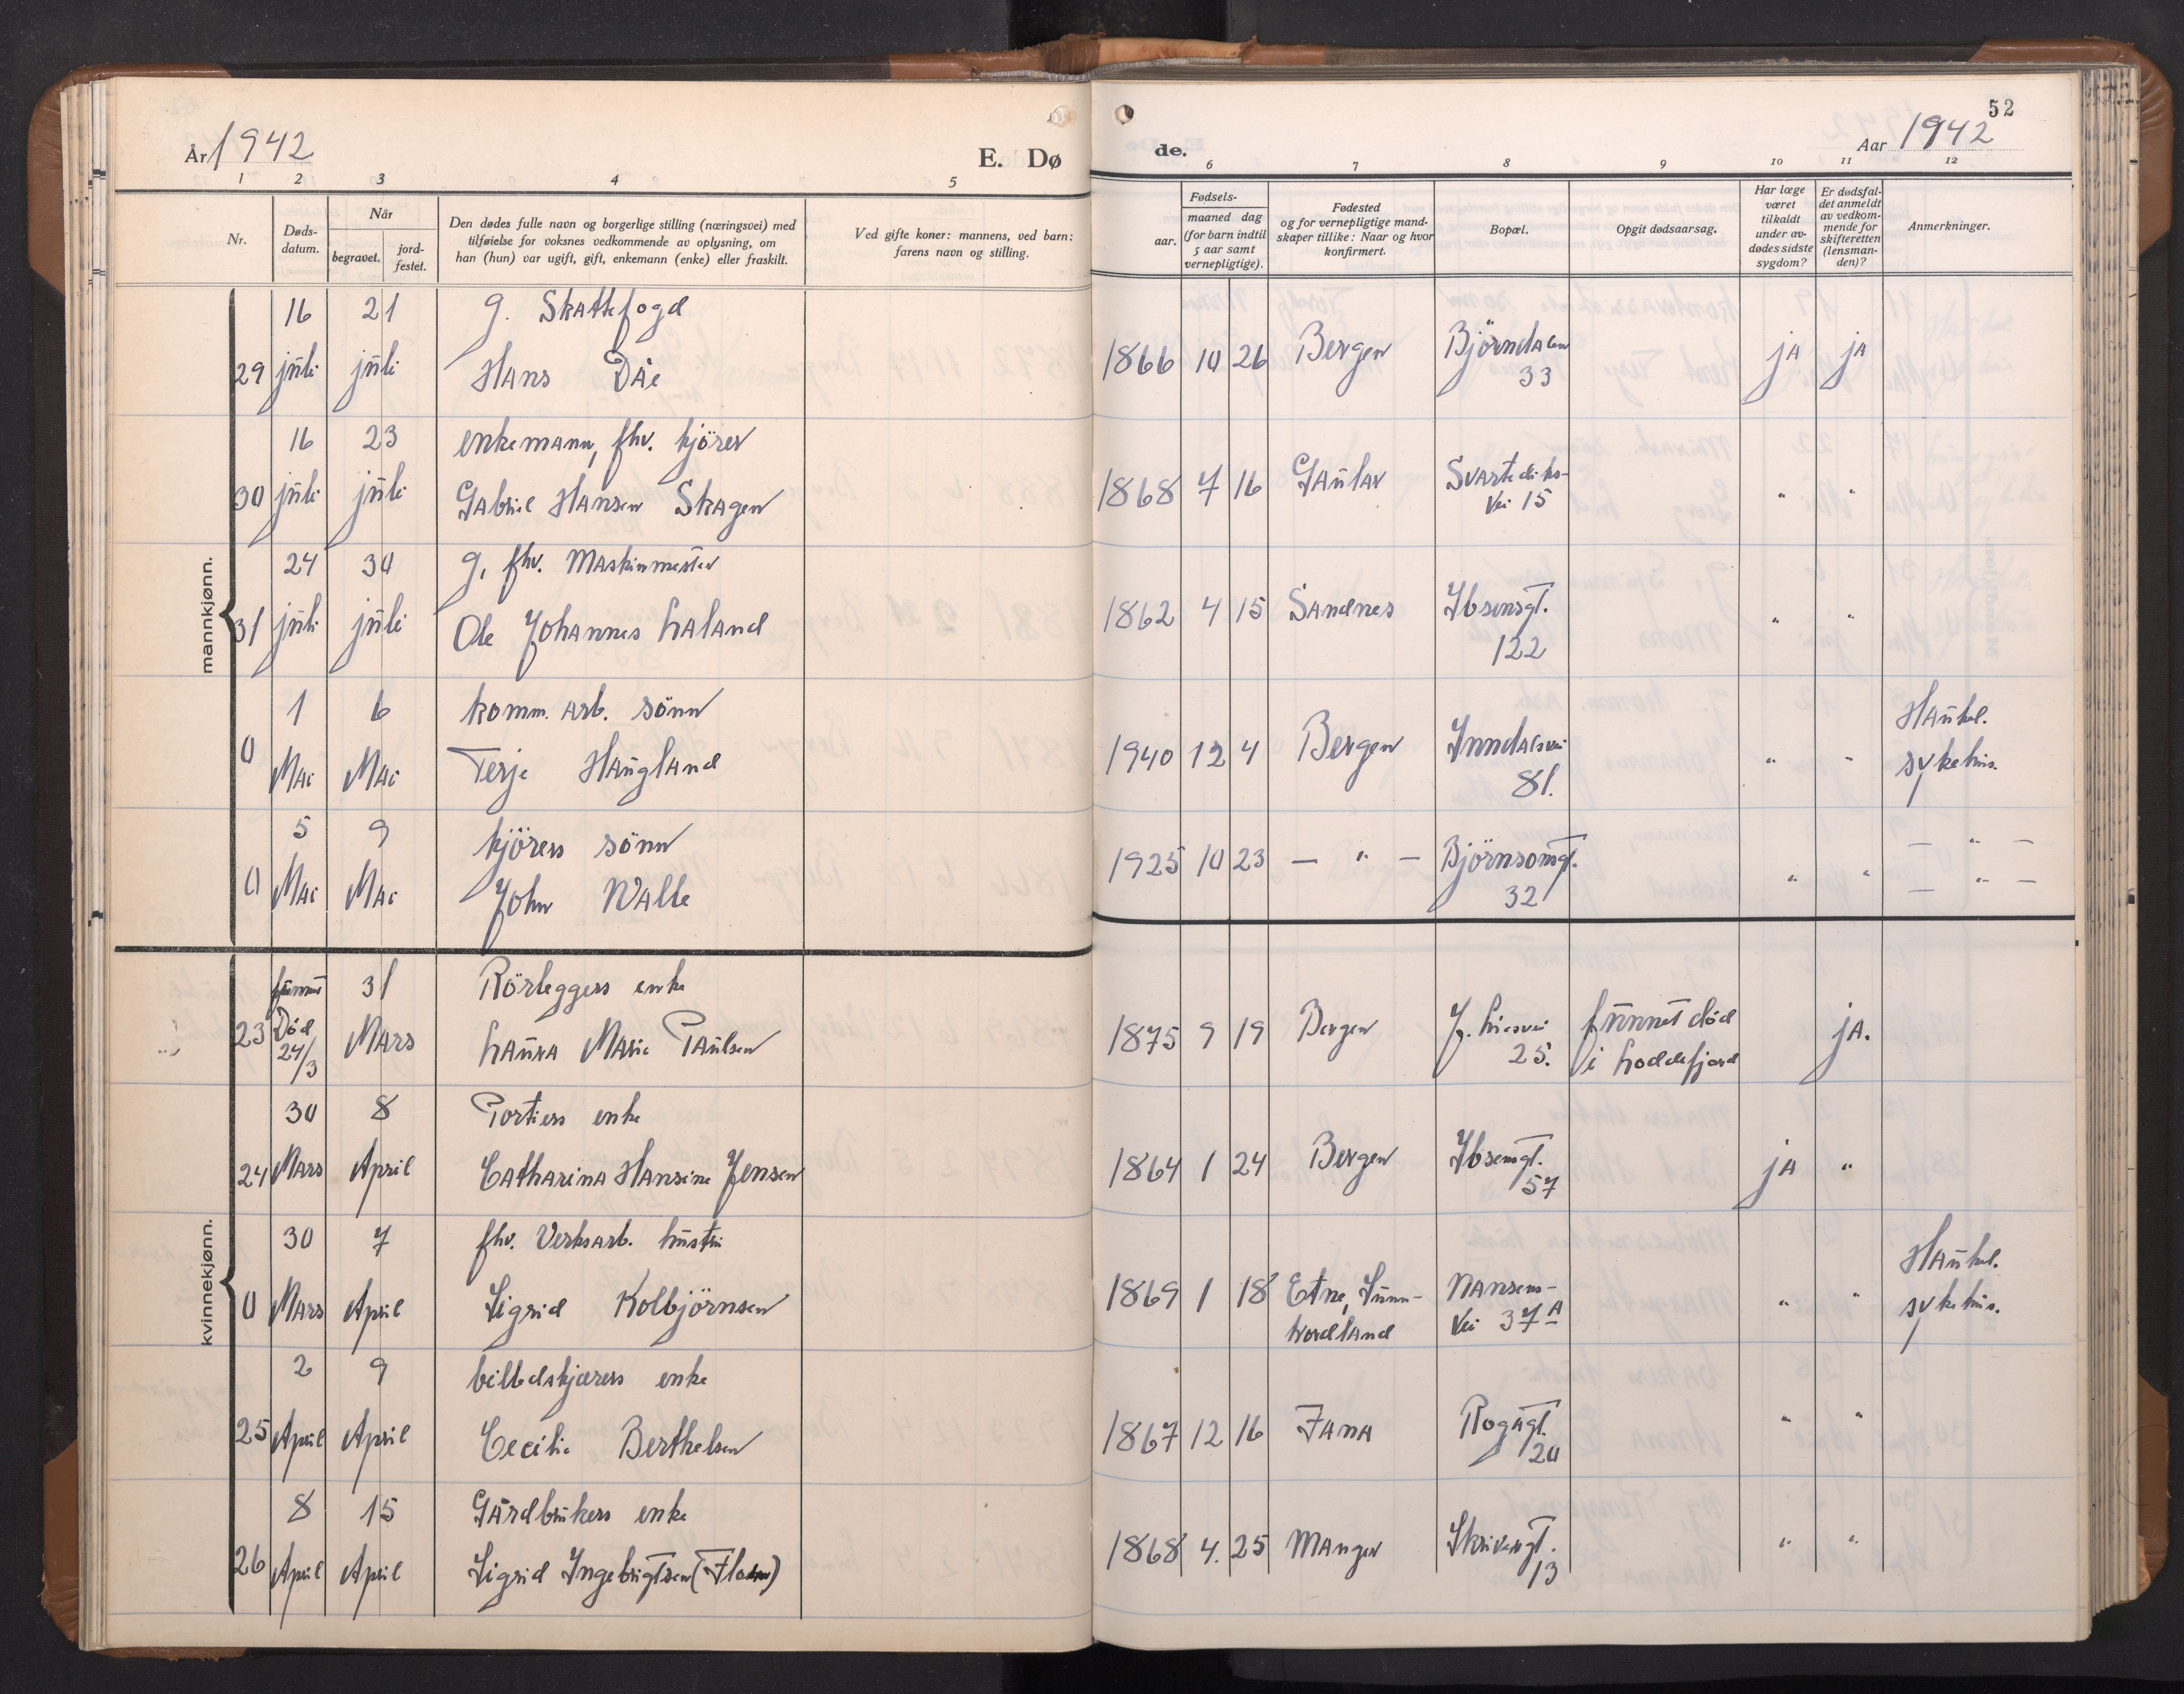 År 1942
E. Dø
1 2 3 4 5
Nr.
Døds-
datum.
Når
begravet.
jord-
festet.
Den dødes fulle navn og borgerlige stilling (næringsvei) med
tilføielse for voksnes vedkommende av oplysning, om
han (hun) var ugift, gift, enkemann (enke) eller fraskilt.
Ved gifte koner: mannens, ved barn:
farens navn og stilling.
mannkjønn.
16 21 g. Skattefogd
29 juli juli Hans Dåe
16 23 enkemann, fhv. kjörer
30 juli juli Gabriel Hansen Skagen
24 30 g. fhv. Maskinmester
31 juli juli Ole Johannes Laland
1 6 komm. arb. sönn
0 Mai Mai Terje Haugland
5 9 kjörers sönn
0 Mai Mai John Walle
kvinnekjønn.
funnet 31 Rörleggers enke
23 Död Mars Laura Marie Paulsen
24/3
30 8 Portiers enke
24 Mars April Catharina Hansine Jensen
30 7 fhv. Verksarb. hustru
0 Mars April Sigrid Kolbjörnsen
2 9 billedskjærers enke
25 April April Cecilie Berthelsen
8 15 Gårdbrukers enke
26 April April Sigrid Ingebrigtsen
52
de.
Aar 1942
6 7 8 9 10 11 12
Fødsels-
aar.
maaned dag
(for barn indtil
5 aar samt
vernepligtige).
Fødested
og for vernepligtige mand-
skaper tillike: Naar og hvor
konfirmert.
Bopæl.
Opgit dødsaarsag.
Har læge
været
tilkaldt
under av-
dødes sidste
sygdom?
Er dødsfal-
det anmeldt
av vedkom-
mende for
skifteretten
(lensman-
den)?
Anmerkninger.
1866 10 26 Bergen Björndalen ja ja
33
1868 7 16 Gaular Svartediks- " "
Vei 15
1862 4 15 Sandnes Ibsensgt. " "
122
1940 12 4 Bergen Inndalsvei " " Haukel.
81. sykehus.
1925 10 23 — " — Björnsonsgt. " " — " —
32 — " —
1875 9 19 Bergen J. Liesvei funnet död ja.
25. i Loddefjord
1864 1 24 Bergen Ibsensgt. ja "
57
1869 1 18 Etne, Sunn- Nansens- " " Haukel.
hordland Vei 37A sykehus.
1867 12 16 Fana Rogagt. " "
20
1868 4. 25 Manger Skivergt. " "
13